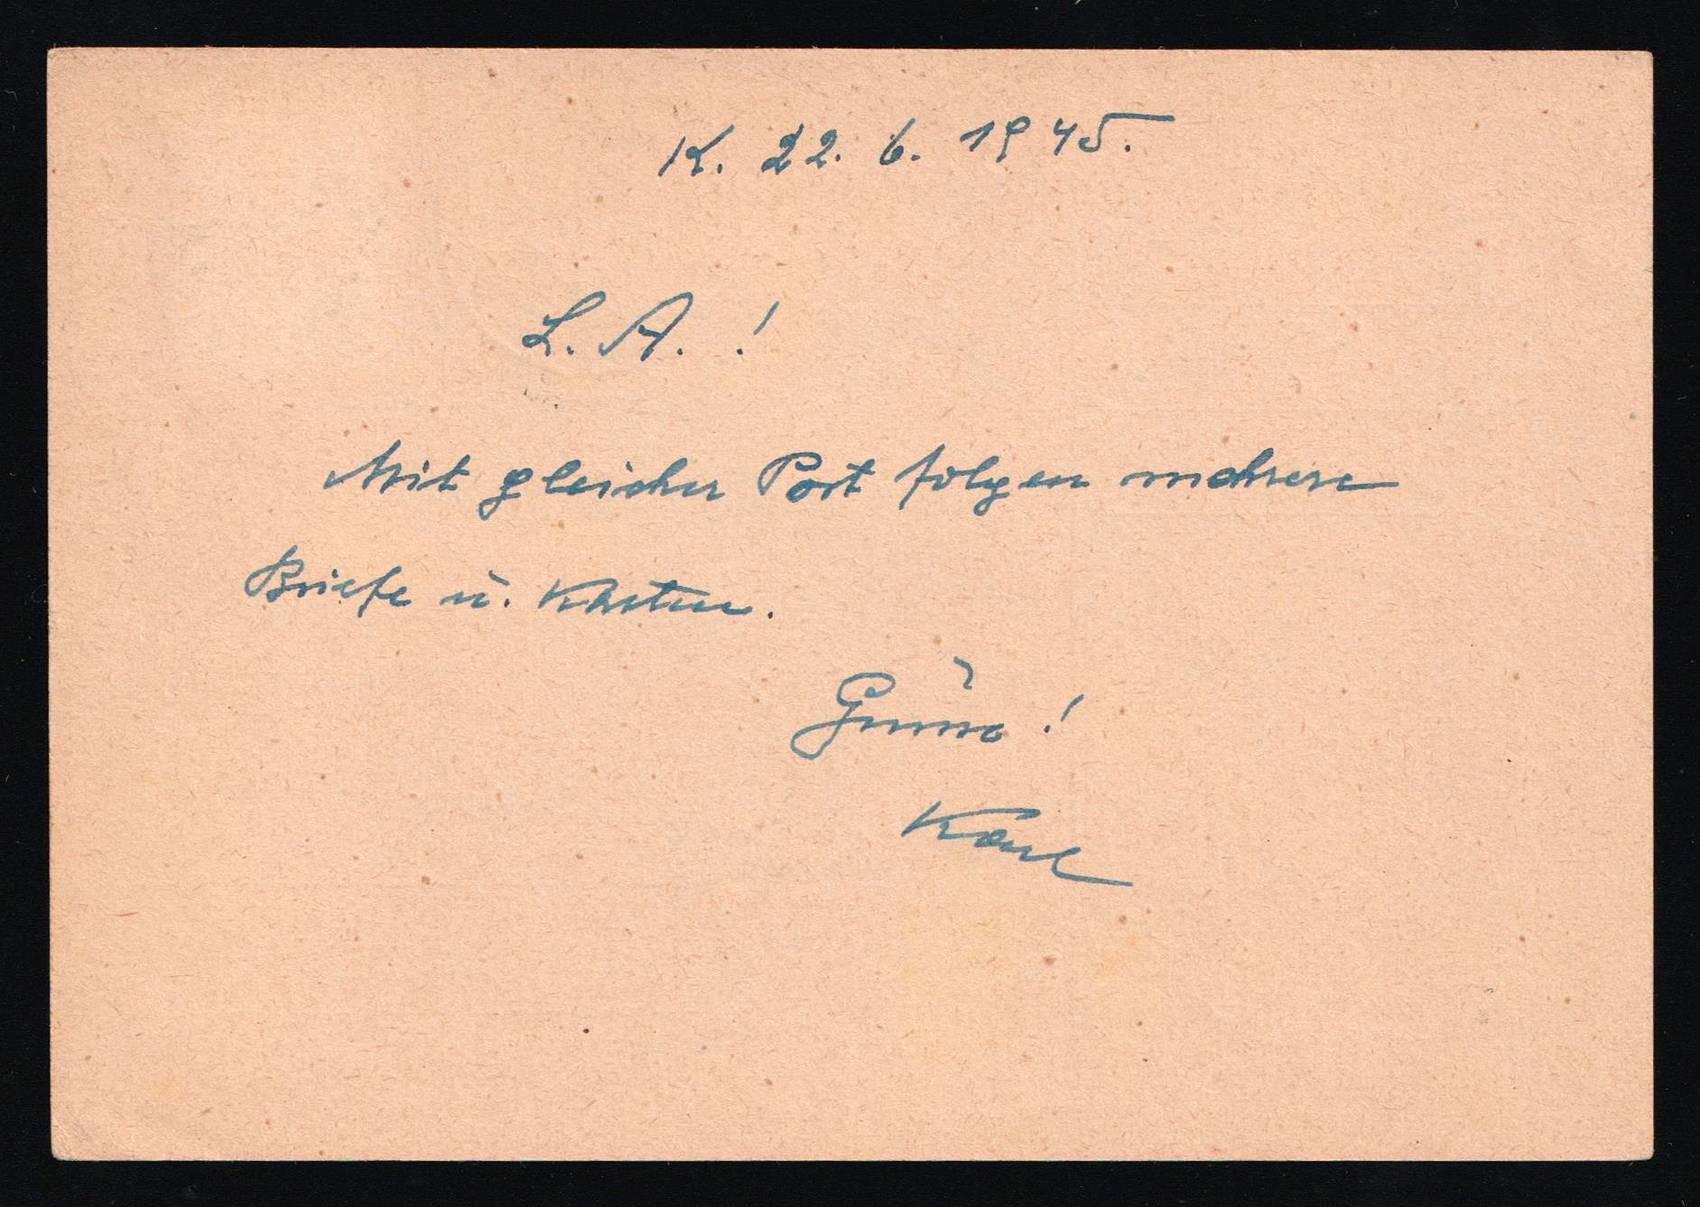 K. 22. 6. 1945.
L. A. !
Mit gleicher Post folgen mehrere
Briefe u. Karten.
Grüße !
Karl